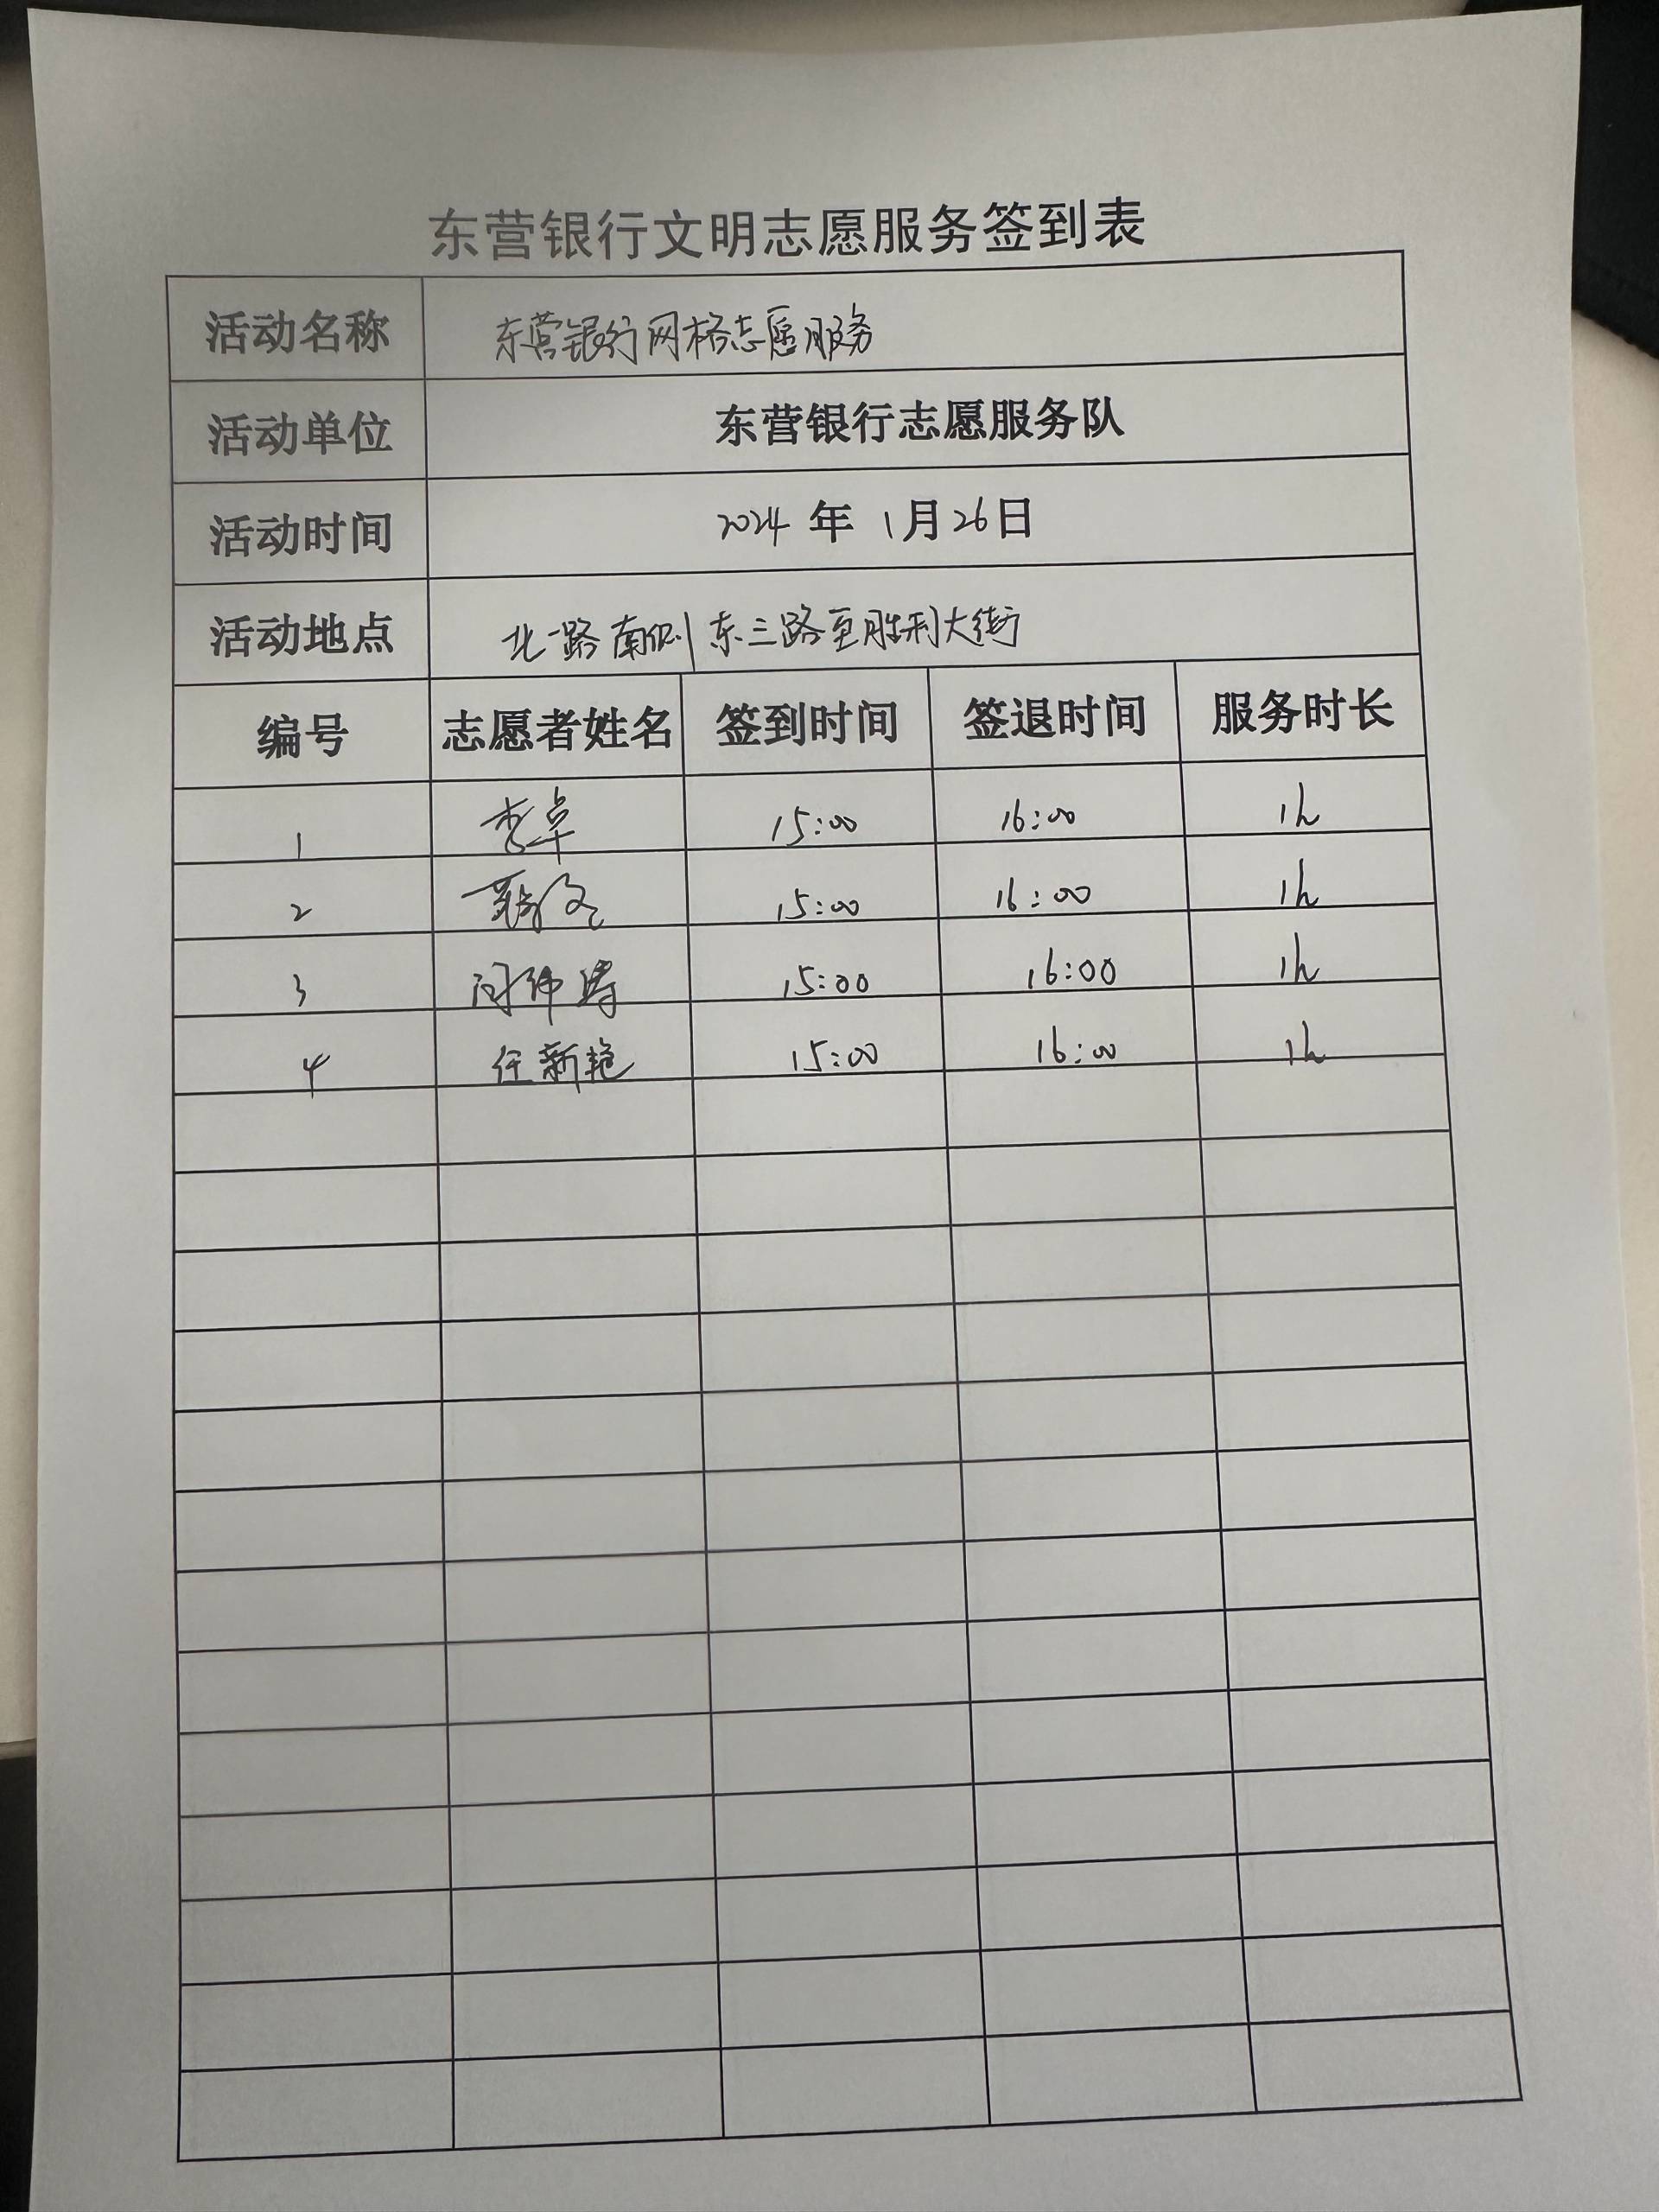 东营银行文明志愿服务签到表
活动名称 东营银行网格志愿服务
活动单位 东营银行志愿服务队
活动时间 2024 年 1月26日
活动地点 北一路南侧东三路至胜利大街
编号 志愿者姓名 签到时间 签退时间 服务时长
1 李卓 15:00 16:00 1h
2 15:00 16:00 1h
3 15:00 16:00 1h
4 任新艳 15:00 16:00 1h